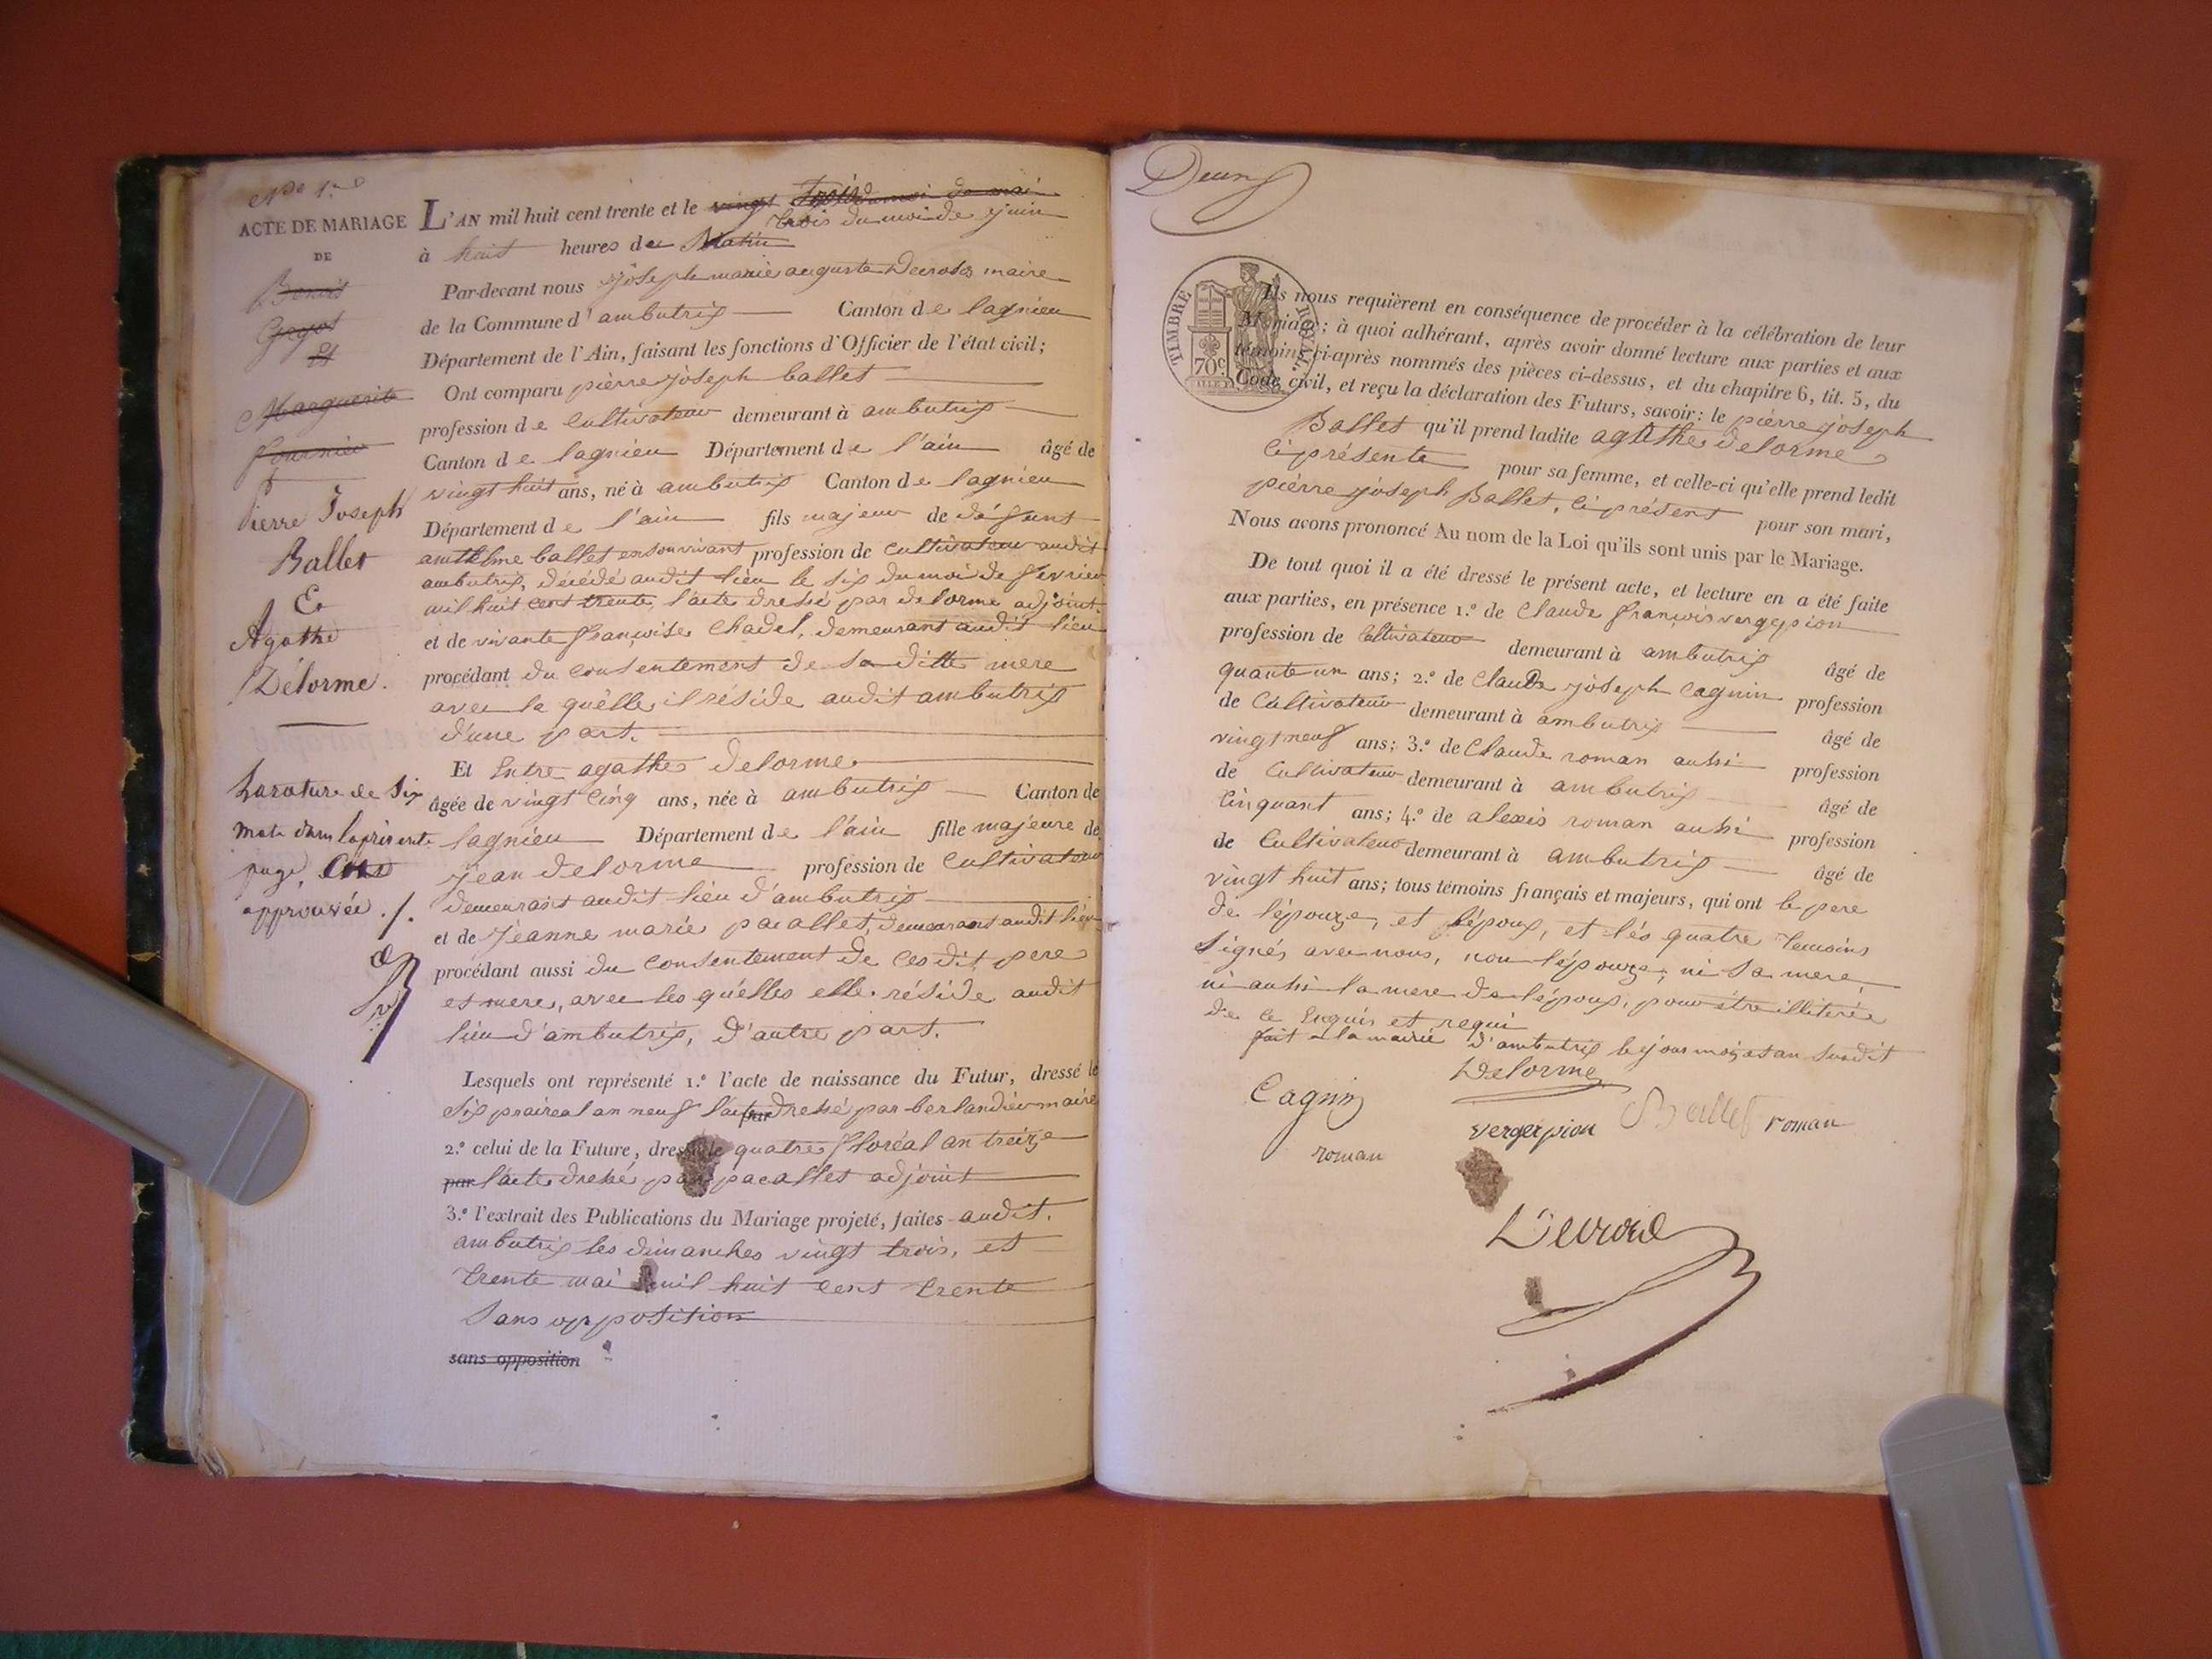 No 1er
ACTE DE MARIAGE
DE
Benoit
Guyot
Et
Marguerite
fournier
Pierre Joseph
Ballet
Et
Agathe
Délorme.
La rature de Six
mots dans la présente
page,
approuvée ./.
L'AN mil huit cent trente et le vingt trois du moi de mai
trois du moi de juin
à huit heures de Matin
Par-devant nous joseph marie auguste Decroso maire
de la Commune d'ambutrix Canton de lagnieu
Département de l'Ain, faisant les fonctions d'Officier de l'état civil;
Ont comparu pièrre joseph ballet
profession de Cultivateur demeurant à ambutrix
Canton de lagnieu Département de l'ain âgé de
vingt huit ans, né à ambutrix Canton de lagnieu
Département de l'ain fils majeur de défunt
anthelme ballet en son vivant profession de Cultivateur audit
ambutrix, décédé audit lieu le six du moi de fevrier
mil huit cent trente, l'acte dressé par delorme adjoint.
et de vivante françoise Chadel, demeurant audit lieu
procédant du consentement de sa ditte mere
avec la quelle il réside audit ambutrix
d'une part.
Et Entre agathe delorme
âgée de vingt cinq ans, née à ambutrix Canton de
lagnieu Département de l'ain fille majeure de
jean delorme profession de Cultivateur
demeurant audit lieu d'ambutrix
et de jeanne marie pacallet, demeurant audit lieu
procédant aussi du consentement de ces dit pere
et mere, avec les quelles elle réside audit
lieu d'ambutrix, d'autre part.
Lesquels ont représenté 1.º l'acte de naissance du Futur, dressé le
six praireal an neuf par l'acte dressé par berlandier maire
2.º celui de la Future, dressé le quatre floréal an treize
par l'acte dressé par pacallet adjoint
3.º l'extrait des Publications du Mariage projeté, faites audit.
ambutrix les dimanches vingt trois, et
trente mai mil huit cent trente
Sans opposition
sans opposition
Deux
TIMBRE ROYAL
70c
Ils nous requièrent en conséquence de procéder à la célébration de leur
Mariage; à quoi adhérant, après avoir donné lecture aux parties et aux
témoins ci-après nommés des pièces ci-dessus, et du chapitre 6, tit. 5, du
Code civil, et reçu la déclaration des Futurs, savoir: le pièrre joseph
Ballet qu'il prend ladite agathe delorme
ci présente pour sa femme, et celle-ci qu'elle prend ledit
pièrre joseph Ballet, ci présent pour son mari,
Nous avons prononcé Au nom de la Loi qu'ils sont unis par le Mariage.
De tout quoi il a été dressé le présent acte, et lecture en a été faite
aux parties, en présence 1.º de Claude françois vergepion
profession de Cultivateur demeurant à ambutrix âgé de
quante un ans; 2.º de Claude joseph Cagnin profession
de Cultivateur demeurant à ambutrix âgé de
vingt neuf ans; 3.º de Claude roman aussi profession
de Cultivateur demeurant à ambutrix âgé de
Cinquant ans; 4.º de alexis roman aussi profession
de Cultivateur demeurant à ambutrix âgé de
vingt huit ans; tous témoins français et majeurs, qui ont le pere
de l'épouze, et l'époux, et lés quatre temoins
signés avec nous, non l'épouze, ni sa mere,
ni aussi la mere de l'époux, pour étre illitérée
de ce Enquis et requi
fait a la mairie d'ambutrix le jour moi et an susdit
Delorme
Cagnin
vergerpion Ballet roman
roman
Decroso